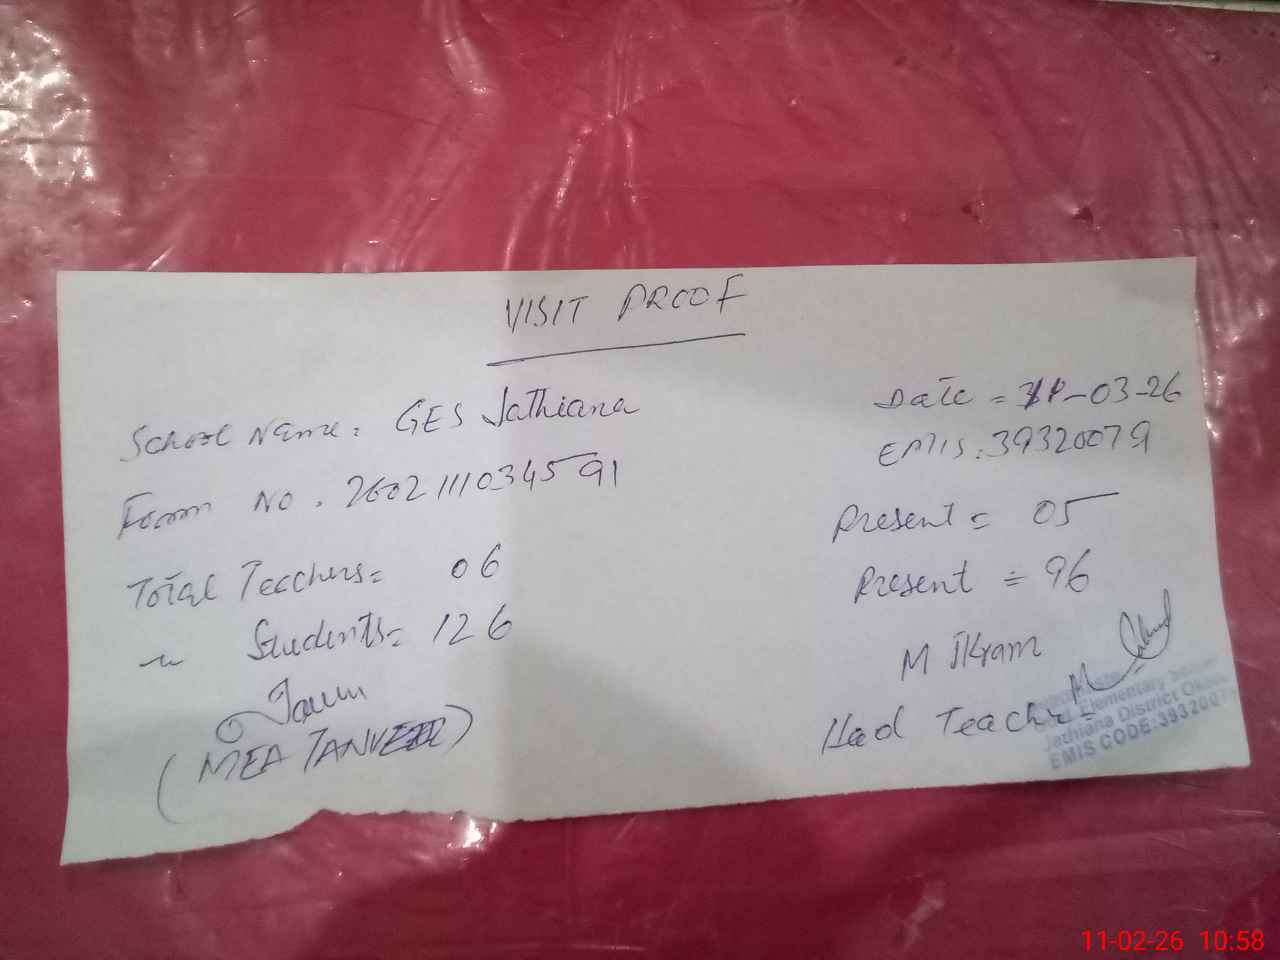 VISIT PROOF
School Name: GES Jathiana
Date = -03-26
EMIS: 39320079
Form No. 2602111034591
Present = 05
Total Teachers = 06
Present = 96
" Students = 126
M Ikram
(MEA TANVEER)
Head Teacher
Elementary
Jathiana District
EMIS CODE:3932007
11-02-26 10:58